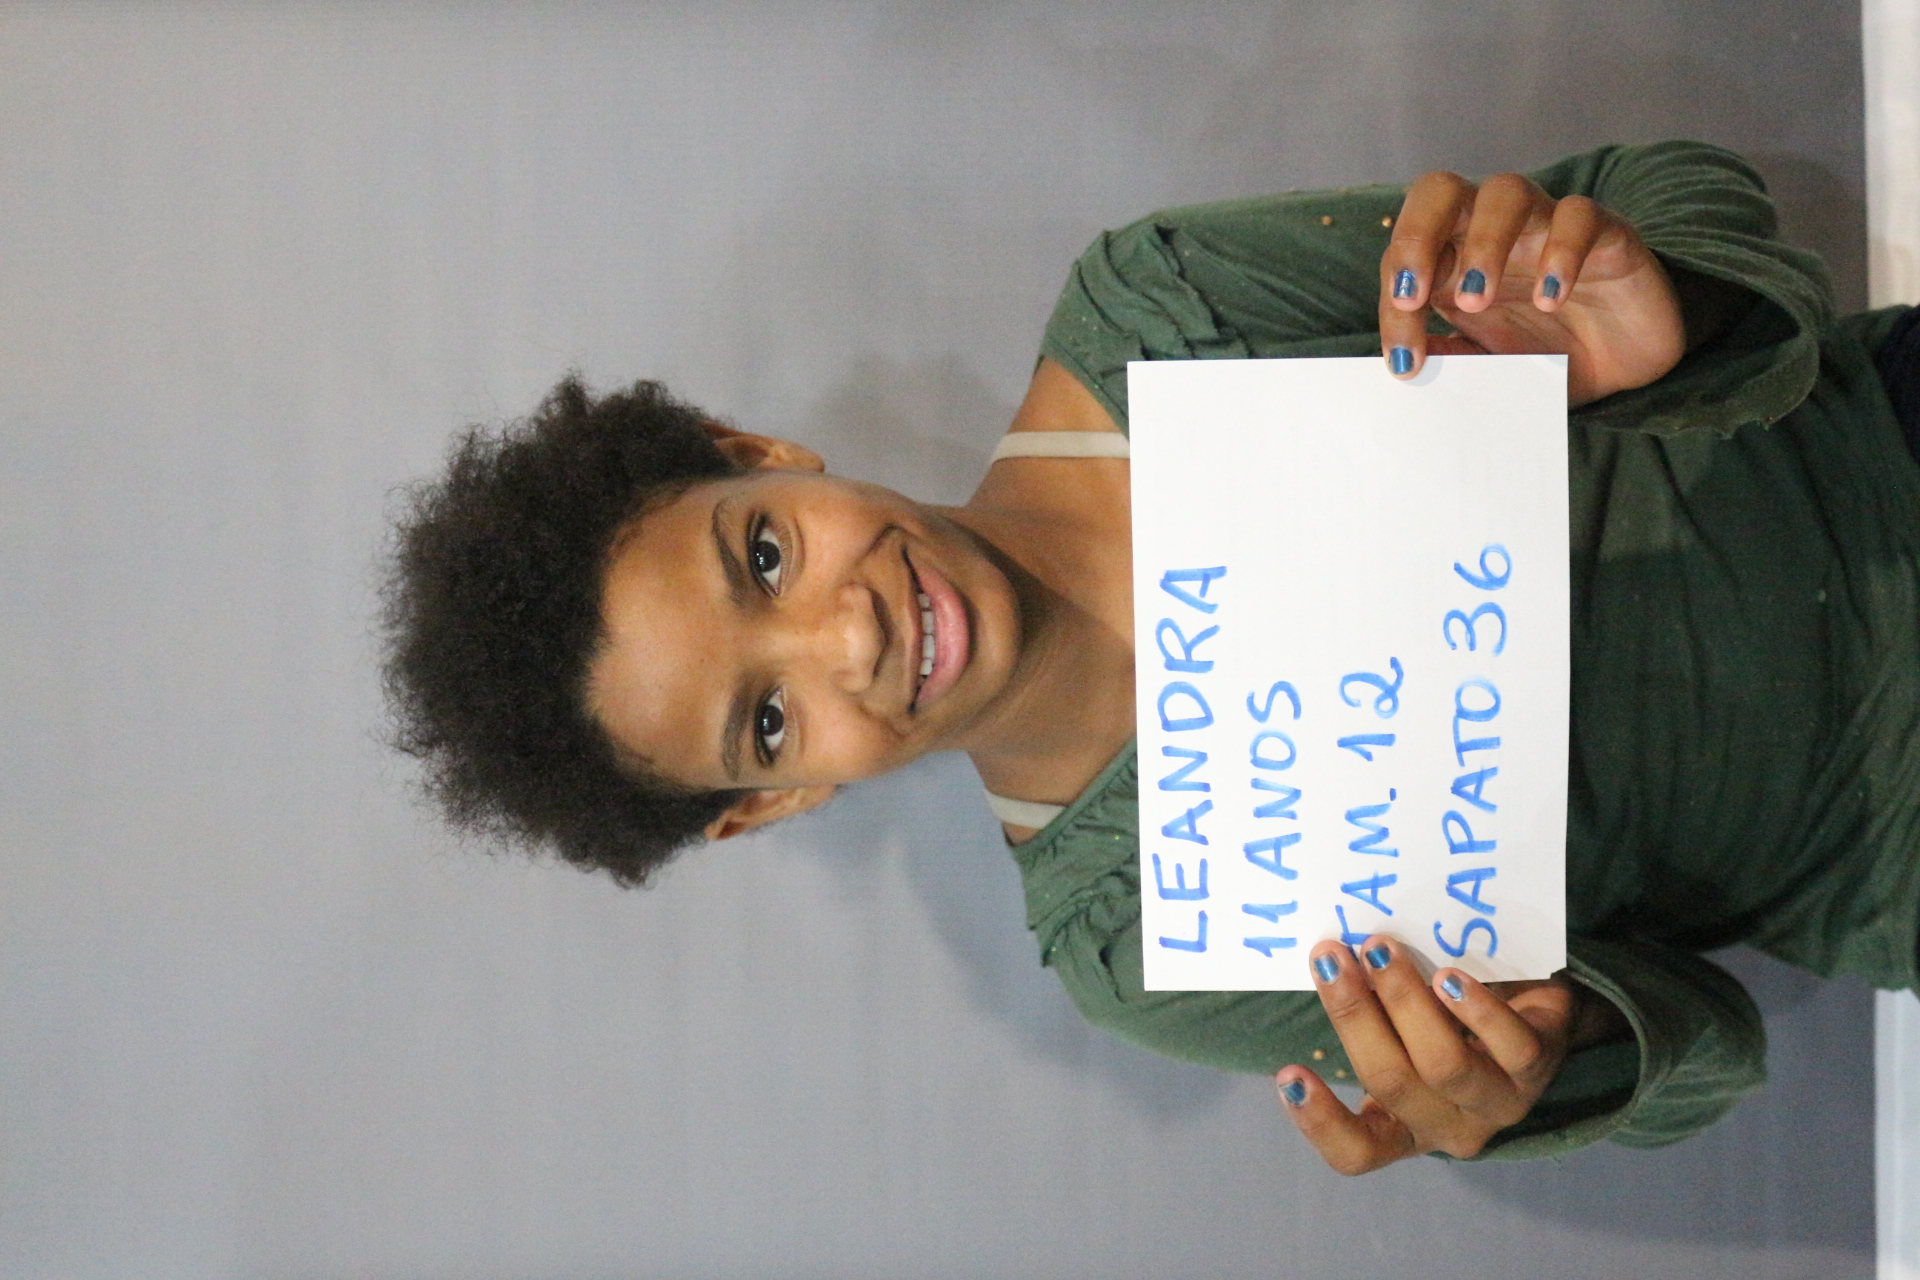 LEANDRA
11 ANOS
TAM. 12
SAPATO 36